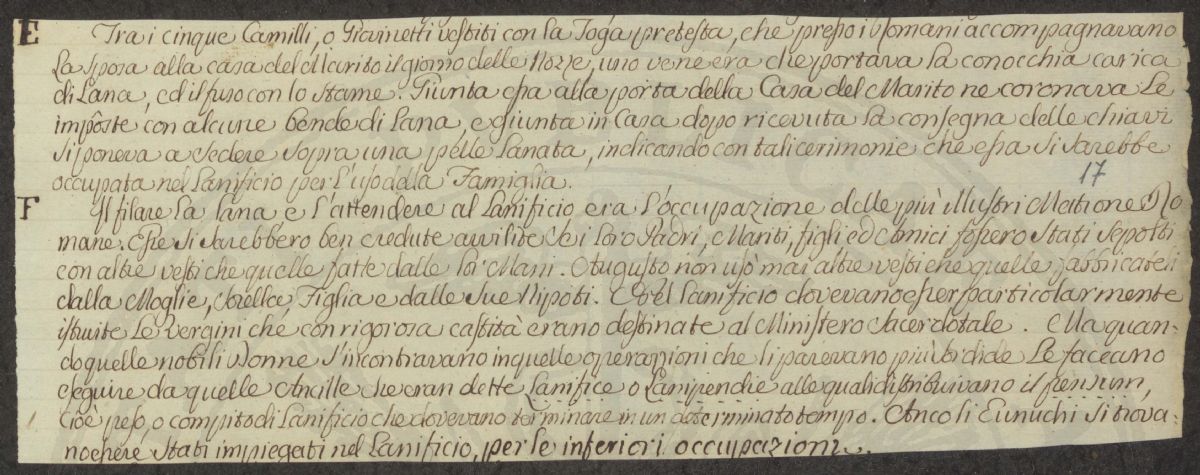 E Tra i cinque Camilli, o Giovinetti vestiti con la Toga pretesta, che presso i Romani accompagnavano
la sposa alla casa del Marito il giorno delle Nozze, uno vene era che portava la conocchia carica
di Lana, ed il fuso con lo stame. Giunta essa alla porta della Casa del Marito ne coronava le
imposte con alcune bende di Lana, e giunta in Casa dopo ricevuta la consegna delle chiavi
si poneva a sedere sopra una pelle Lanata, indicando con tali cerimonie che essa si sarebbe
occupata nel Lanificio per l'uso della Famiglia.
17
F Il filare la Lana e l'attendere al Lanificio era l'occupazione delle più illustri Matrone Ro
mane. Esse si sarebbero ben credute avvilite se i loro Padri, Mariti, figli ed Amici fossero stati sepolti
con altre vesti che quelle fatte dalle lor Mani. Augusto non usò mai altre vesti che quelle fabbricateli
dalla Moglie, Sorella, Figlia e dalle sue Nipoti. Nel Lanificio dovevano esser particolarmente
istruite le Vergini che con rigorosa castità erano destinate al Ministero Sacerdotale. Ma quan-
do quelle nobili Donne s'incontravano in quelle operazioni che li parevano più sordide le faceano
eseguire da quelle Ancille che eran dette Lanifice o Lanipendie alle quali distribuivano il pensum,
cioè peso, o compito di Lanificio che dovevano terminare in un determinato tempo. Anco li Eunuchi si trova-
no essere stati impiegati nel Lanificio, per le inferiori occupazioni.